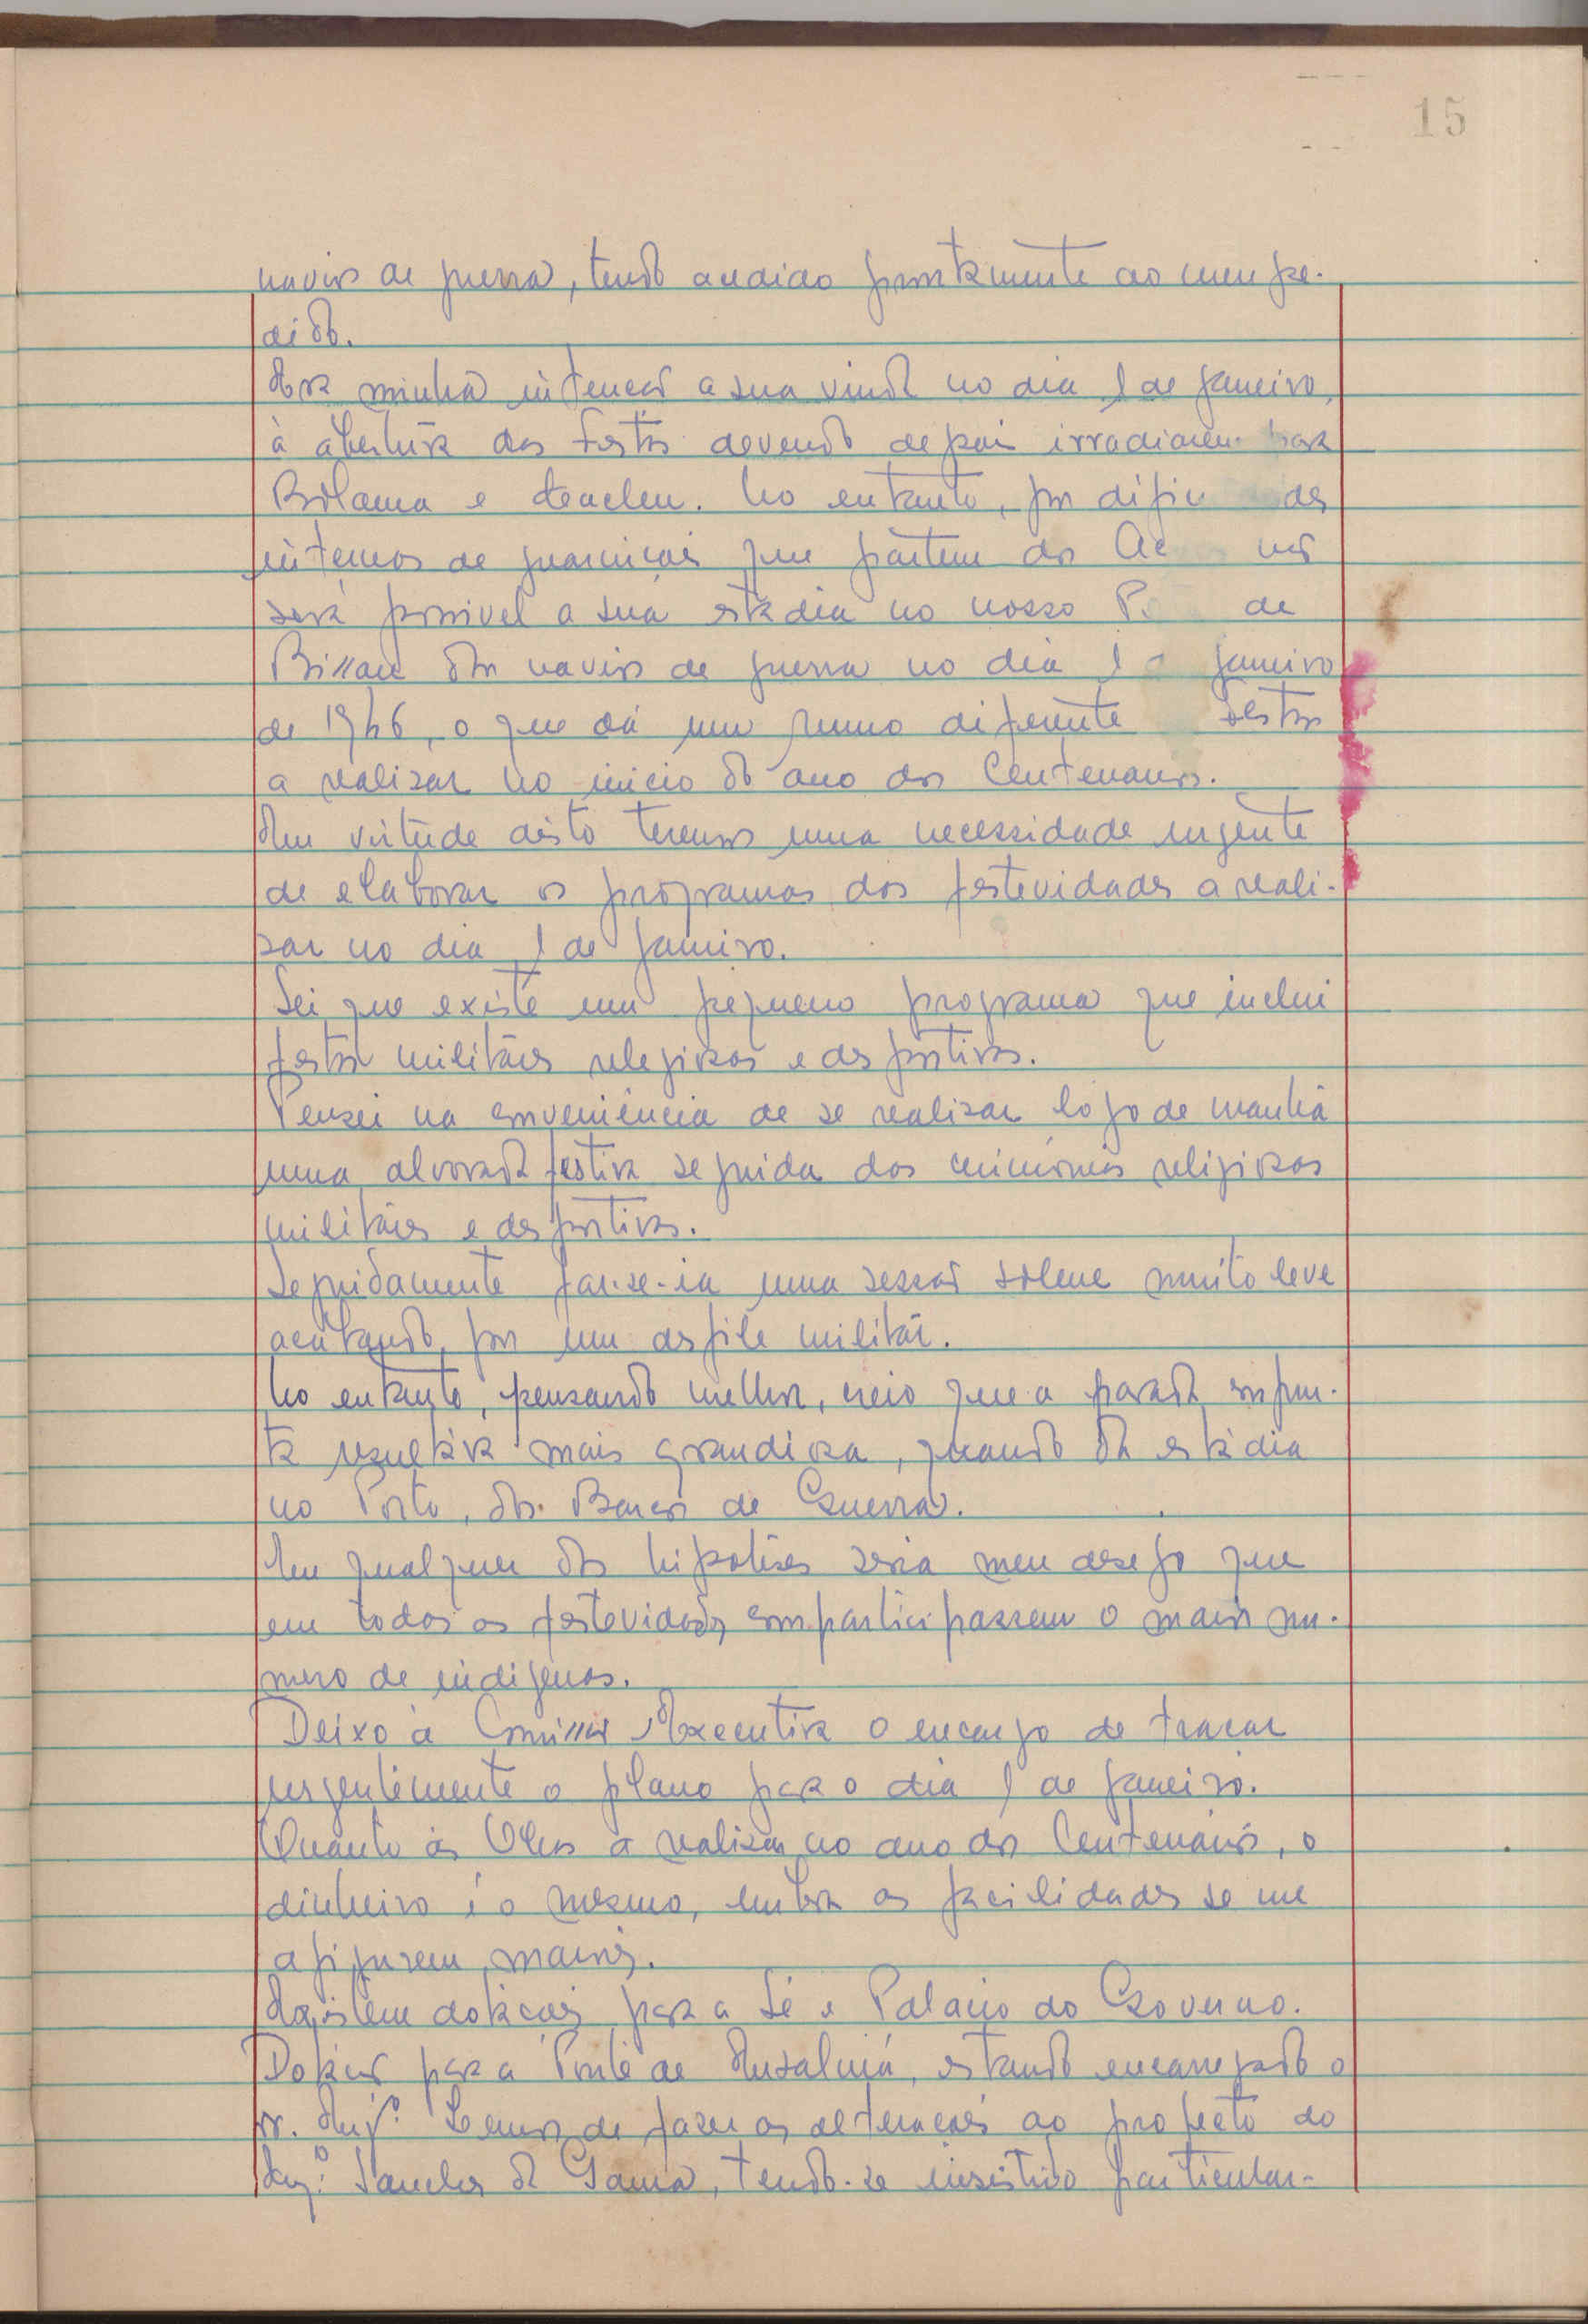 15
navios de guerra, tendo acedido prontamente ao meu pe-
dido.
Era minha intenção a sua vinda no dia 1 de Janeiro,
à abertura das Festas devendo depois irradiarem para
Bolama e Cacheu. No entanto, por
internas de guarnições que partem dos não
será possivel a sua estadia no nosso de
Bissau dos navios de guerra no dia 1 Janeiro
de 1946, o que dá um rumo diferente Festas
a realizar no inicio do ano dos Centenarios.
Em virtude disto temos uma necessidade urgente
de elaborar os programas das festevidades a reali-
zar no dia 1 de Janeiro.
Sei que existe um pequeno programa que inclui
festas militares relegiosas e desportivas.
Pensei na conveniência de se realizar logo de manhã
uma alvorada festiva seguida das cerimónias religiosas
militares e desportivas.
Seguidamente far-se-ia uma sessão solene muito leve
acabando por um desfile militar.
No entanto, pensando melhor, creio que a parada conjun-
ta resultára mais grandiosa, quando da estádia
no Porto, dos Barcos de Guerra.
Em qualquer das hipoteses seria meu desejo que
em todas as festevidades comparticipassem o maior nu-
mero de indigenas.
Deixo à Comissão Executiva o encargo de traçar
urgentemente o plano para o dia 1 de Janeiro.
Quanto às Obras a realizar no ano dos Centenários, o
dinheiro é o mesmo, embora as facilidades se me
afigurem maiores.
Existem dotações para a Sé e Palacio do Governo.
Dotação para a Ponte de Ensalmá, estando encarregado o
sr. Engº. Lemos de fazer as alterações ao projecto do
Engº. Sanches da Gama, tendo-se insistido particular-